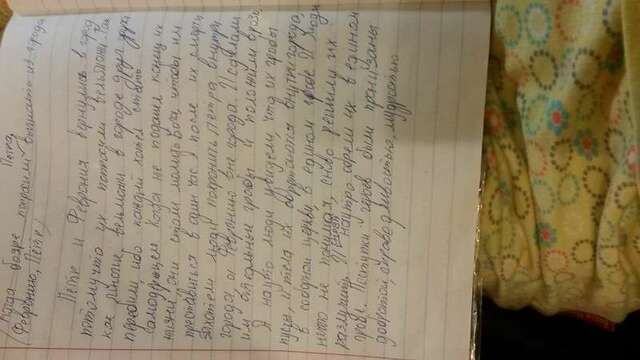 (Когда бояре попросили Петра, выгнать из города
Февронию, Пётр)
Пётр и Феврония вернулись в город
потому что их попросили вельможи. Так
как многие, вельможи в городе друг друга
перебили, ибо каждый хотел стать
самодержцем. Когда не подошёл конец их
жизни, они стали молить бога, чтобы им
преставиться в один час. А после их смерти
захотели люди похоронить Петра внутри
города, а Февронию вне города. И сделали
им отдельные гробы и положили врозь
А наутро люди увидели, что их гробы
пусты, и тела их обретаются внутри города,
в соборной церкви, в едином гробе. И люди
ничего не понимая, снова решили их
разлучить. И опять наутро обрели их в едином
гробе. Поступки героев были пронизаны
добротой, справедливостью, мудростью